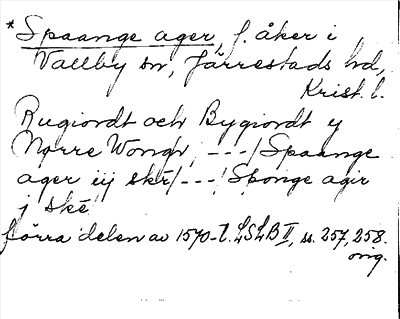 * Spaange ager, f. åker i
Vallby sn, Järrestads hd,
Krist. l.
Rugiordt och Bygiordt y
Nørre Wongh, ---/ Spaange
ager iij skr/---/ Sponge agir
j skē
förra delen av 1570-t. LSLB II, ss. 257, 258.
orig.